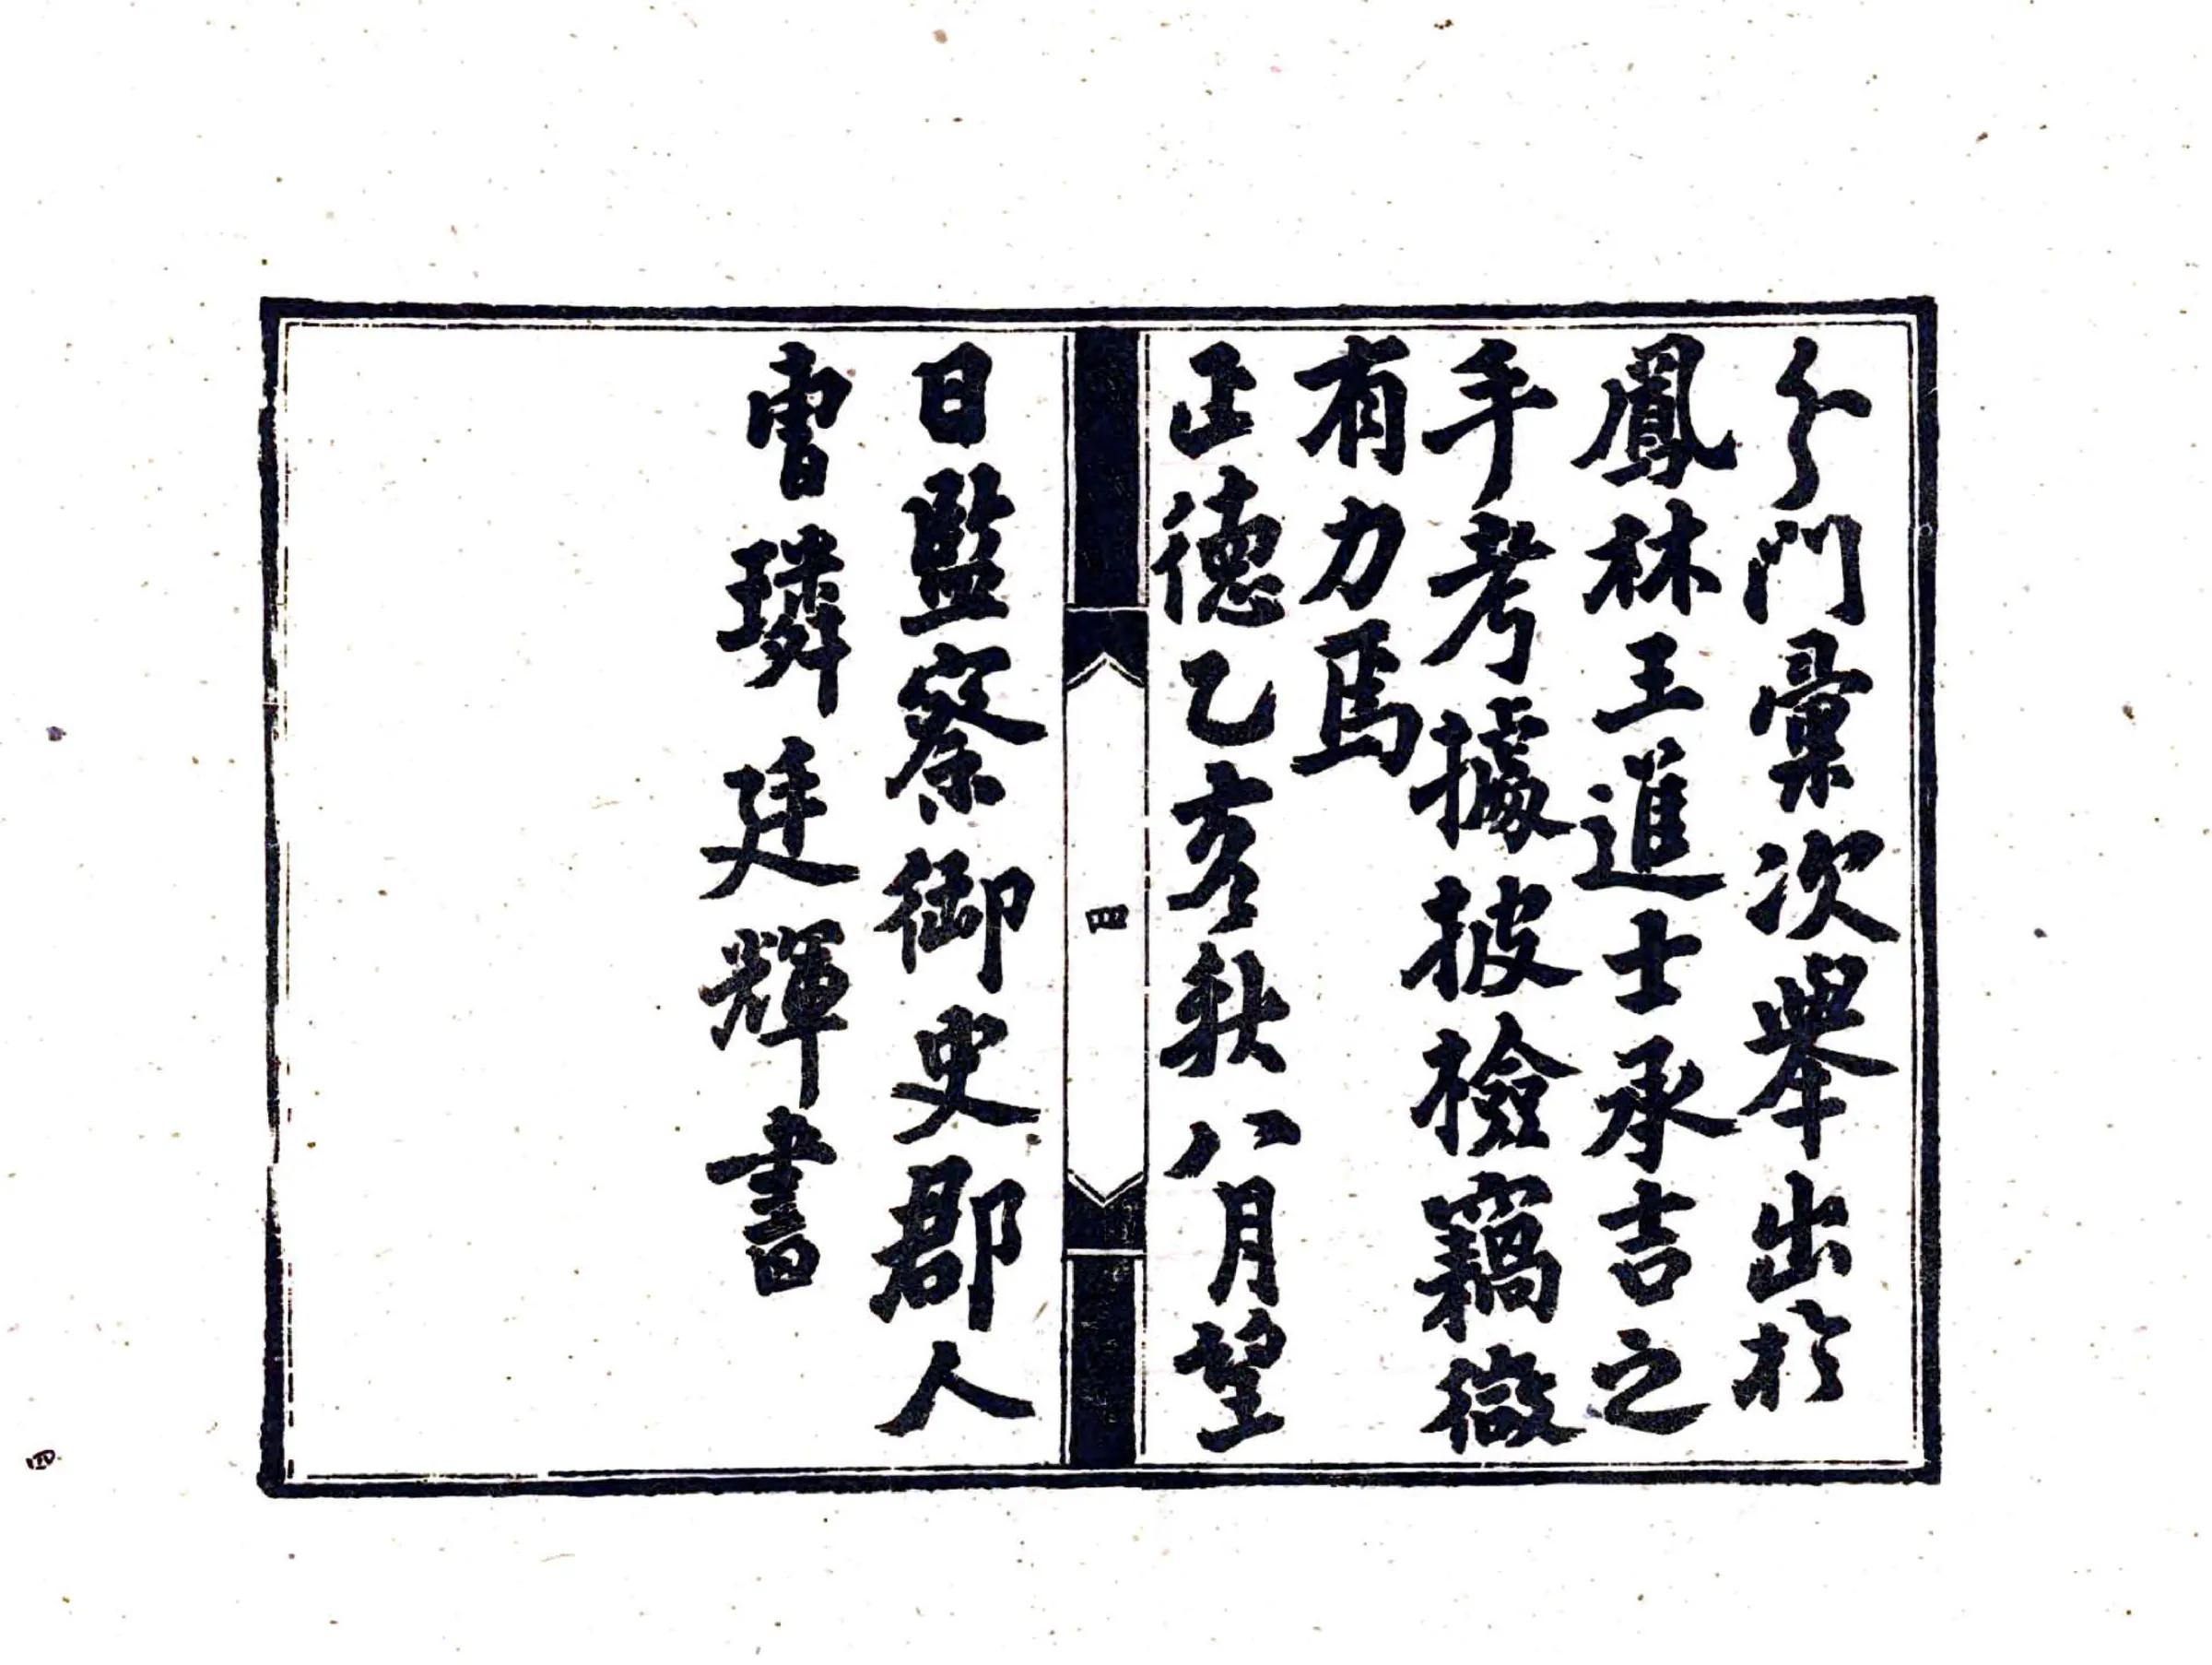 分門彙次舉出於
鳳林王進士承吉之
手考據披檢竊微
有力焉
正德乙亥秋八月望
日監察御史郡人
曹璘廷輝書
四
四